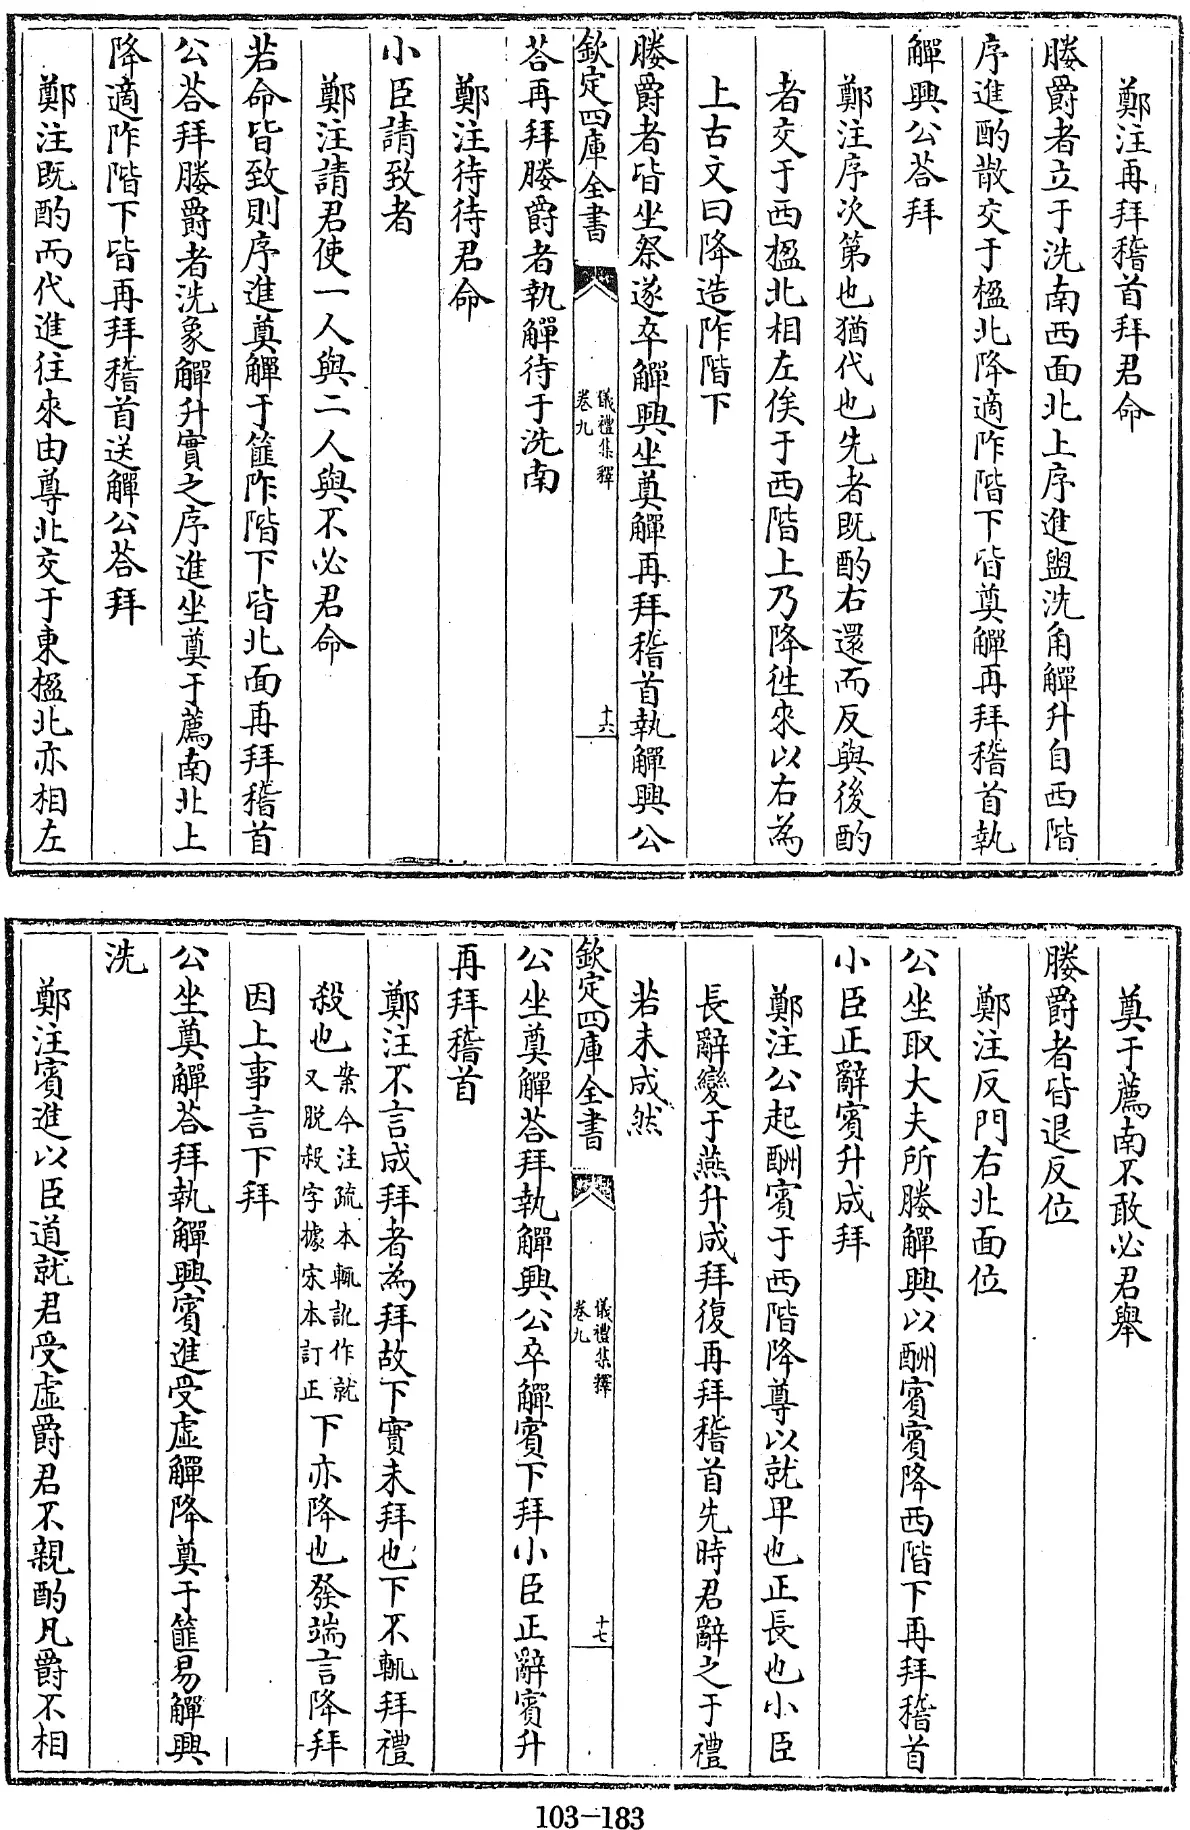 鄭注再拜稽首拜君命
媵爵者立于洗南西面北上序進盥洗角觶升自西階
序進酌散交于楹北降適阼階下皆奠觶再拜稽首執
觶興公荅拜
鄭注序次第也猶代也先者既酌右還而反與後酌
者交于西楹北相左俟于西階上乃降徃來以右為
上古文曰降造阼階下
媵爵者皆坐祭遂卒觶興坐奠觶再拜稽首執觶興公
欽定四庫全書
儀禮集釋
卷九
十六
荅再拜媵爵者執觶待于洗南
鄭注待待君命
小臣請致者
鄭注請君使一人與二人與不必君命
若命皆致則序進奠觶于篚阼階下皆北面再拜稽首
公荅拜媵爵者洗象觶升實之序進坐奠于薦南北上
降適阼階下皆再拜稽首送觶公荅拜
鄭注既酌而代進往來由尊北交于東楹北亦相左
奠于薦南不敢必君舉
媵爵者皆退反位
鄭注反門右北面位
公坐取大夫所媵觶興以酬賓賓降西階下再拜稽首
小臣正辭賓升成拜
鄭注公起酬賓于西階降尊以就卑也正長也小臣
長辭變于燕升成拜復再拜稽首先時君辭之于禮
若未成然
欽定四庫全書
儀禮集釋
卷九
十七
公坐奠觶荅拜執觶興公卒觶賓下拜小臣正辭賓升
再拜稽首
鄭注不言成拜者為拜故下實未拜也下不輒拜禮
殺也案今注疏本輒訛作就又脱殺字據宋本訂正下亦降也發端言降拜
因上事言下拜
公坐奠觶荅拜執觶興賓進受虛觶降奠于篚易觶興
洗
鄭注賓進以臣道就君受虛爵君不親酌凡爵不相
103-183